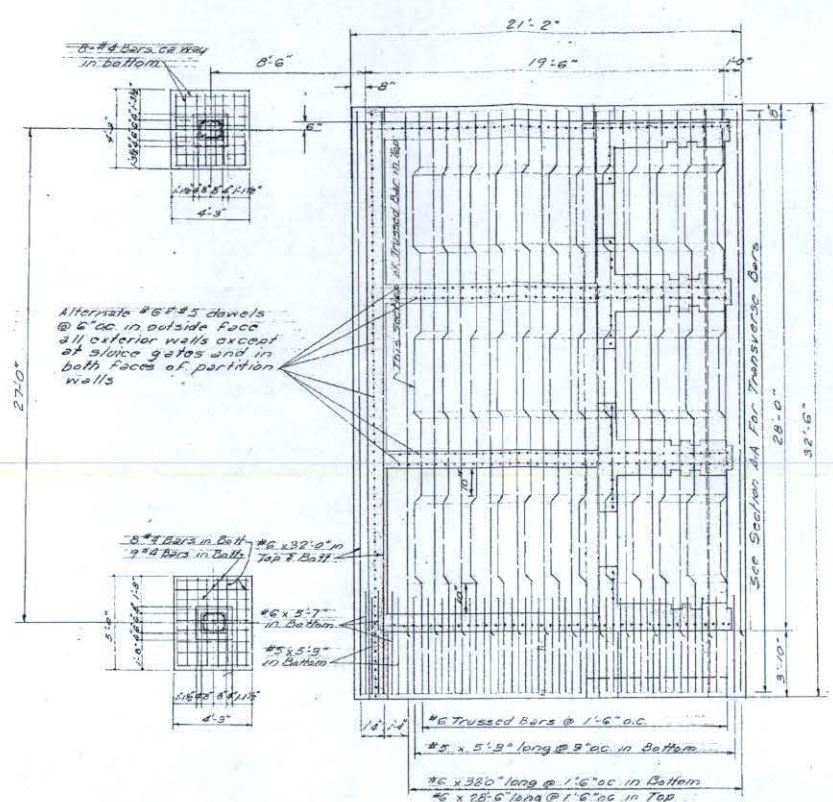 21'-2"
8-#4 Bars ea way
in bottom
8'-6"
8"
19'-6"
1'-0"
6"
8"
4'-3"
4'-3"
This section of Trussed Bar in Top
Alternate #6 & #5 dowels
@ 6" oc. in outside face
all exterior walls except
at sluice gates and in
both faces of partition
walls
27'-0"
See Section AA For Transverse Bars
28'-0"
32'-6"
10"
8 #4 Bars in Bott
9 #4 Bars in Bott
#6 x 32'-0" in
Top & Bott
#6 x 5'-7"
in Bottom
10"
#5 x 5'-9"
in Bottom
5'-0"
3'-10"
4'-3"
1'-4"
1'-4"
#6 Trussed Bars @ 1'-6" o.c.
#5 x 5'-9" long @ 9" oc in Bottom
#6 x 32'0" long @ 1'-6" oc in Bottom
#6 x 28'-6" long @ 1'-6" oc in Top